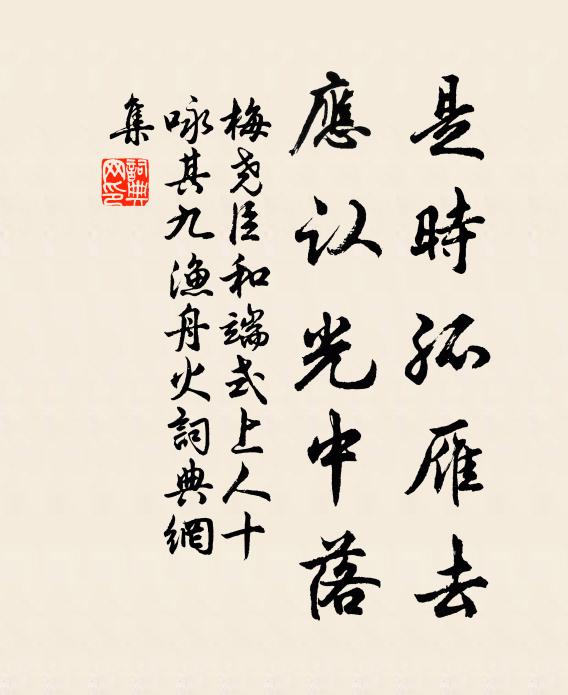 是時孤雁去
應认光中落
梅尧臣和端式上人十
咏其九漁舟火詞典網
集
詞典
网印